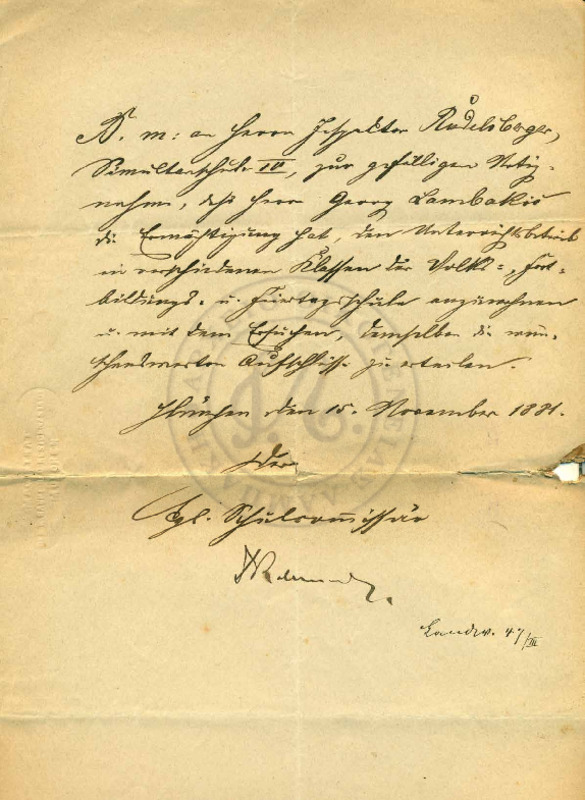 B. m. an Herrn Inspektor Rudelsberger,
Simultanschule IV, zur gefälligen Notiz-
nahme, daß Herr Georg Lambakis
die Ermächtigung hat, den Unterrichtsbetrieb
in verschiedenen Klassen der Volks-, Fort-
bildungs- u. Feiertagsschule anzusehen
u. mit dem Ersuchen, demselben die wün-
schenswerten Aufschlüsse zu erteilen.
München den 15. November 1881.
Der
Kgl. Schulcommissär
Landw. 47/III